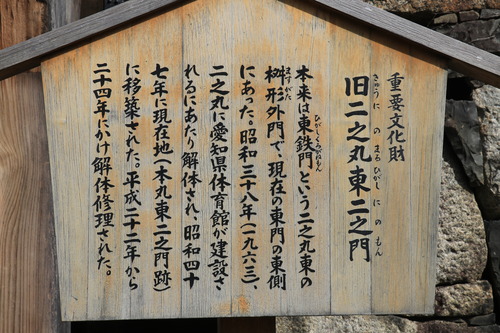 重要文化財
旧二之丸東二之門
きゅうにのまるひがしにのもん
本来は東鉄門という二之丸東の
ひがしくろがねもん
桝形外門で、現在の東門の東側
ますがた
にあった。昭和三十八年(一九六三)、
二之丸に愛知県体育館が建設さ
れるにあたり解体され、昭和四十
七年に現在地(本丸東二之門跡)
に移築された。平成二十二年から
二十四年にかけ解体修理された。